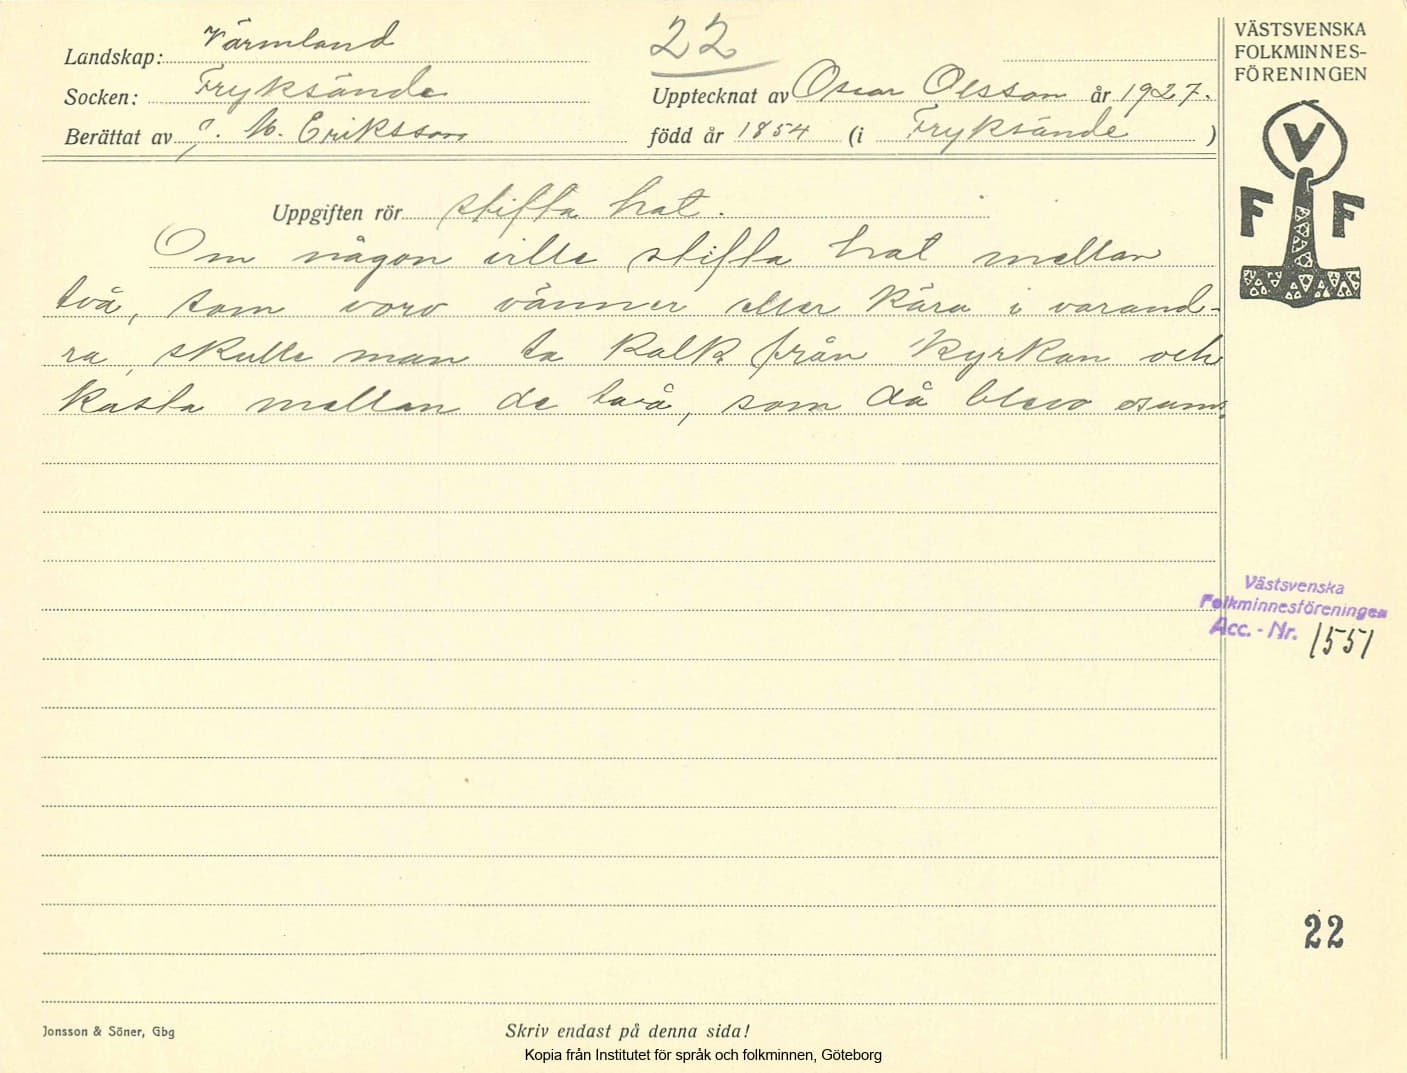 Landskap: Värmland
22
VÄSTSVENSKA
FOLKMINNES-
FÖRENINGEN
Socken: Fryksände
Upptecknat av Oscar Olsson år 1927.
Berättat av J. M. Eriksson
född år 1854 (i Fryksände )
V
F F
Uppgiften rör stifta hat.
Om någon ville stifta hat mellan
två, som voro vänner eller kära i varand-
ra, skulle man ta kalk från kyrkan och
kasta mellan de två, som då blevo osams.
Västsvenska
Folkminnesföreningen
Acc. - Nr. 1551
22
Jonsson & Söner, Gbg
Skriv endast på denna sida!
Kopia från Institutet för språk och folkminnen, Göteborg